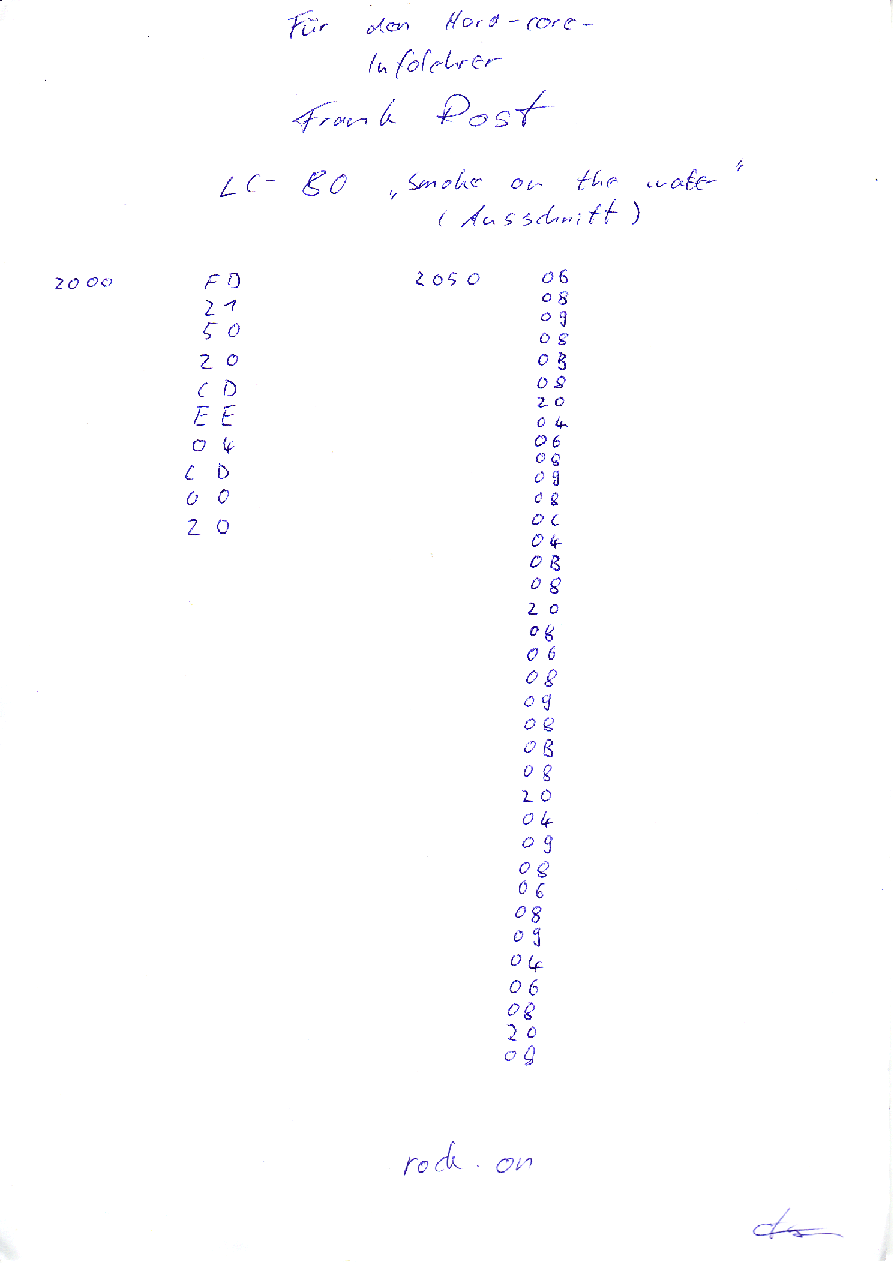 Für den Hard-core-
Infolehrer
Frank Post
LC-80 „Smoke on the water"
(Ausschnitt)
2000 FD 2050 06
21 08
50 09
20 08
CD 0B
EE 08
04 20
CD 04
00 06
20 08
09
08
0C
04
0B
08
20
08
06
08
09
08
0B
08
20
04
09
08
06
08
09
04
06
08
20
08
rock on